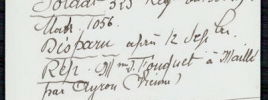 Soldat 325 Rég
Matr. 1056.
Disparu après 12 Sept
Rép. Mme J. Fouquet à Maillé
par Ayron (Vienne)